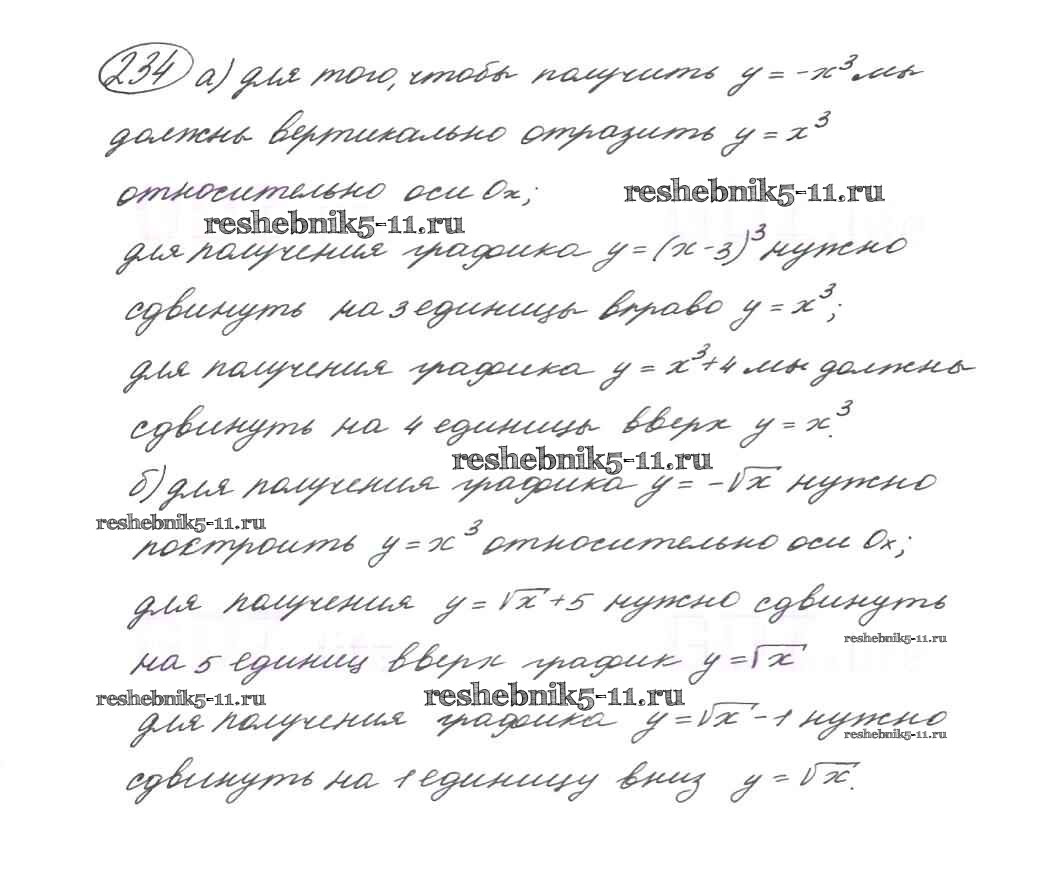 234 а) для того, чтобы получить y = -x³ мы
должны вертикально отразить y = x³
относительно оси Ox;
reshebnik5-11.ru
reshebnik5-11.ru
для получения графика y = (x-3)³ нужно
сдвинуть на 3 единицы вправо y = x³;
для получения графика y = x³+4 мы должны
сдвинуть на 4 единицы вверх y = x³.
reshebnik5-11.ru
б) для получения графика y = -√x нужно
reshebnik5-11.ru
построить y = x³ относительно оси Ox;
для получения y = √x + 5 нужно сдвинуть
reshebnik5-11.ru
на 5 единиц вверх график y = √x
reshebnik5-11.ru
reshebnik5-11.ru
для получения графика y = √x - 1 нужно
reshebnik5-11.ru
сдвинуть на 1 единицу вниз y = √x.